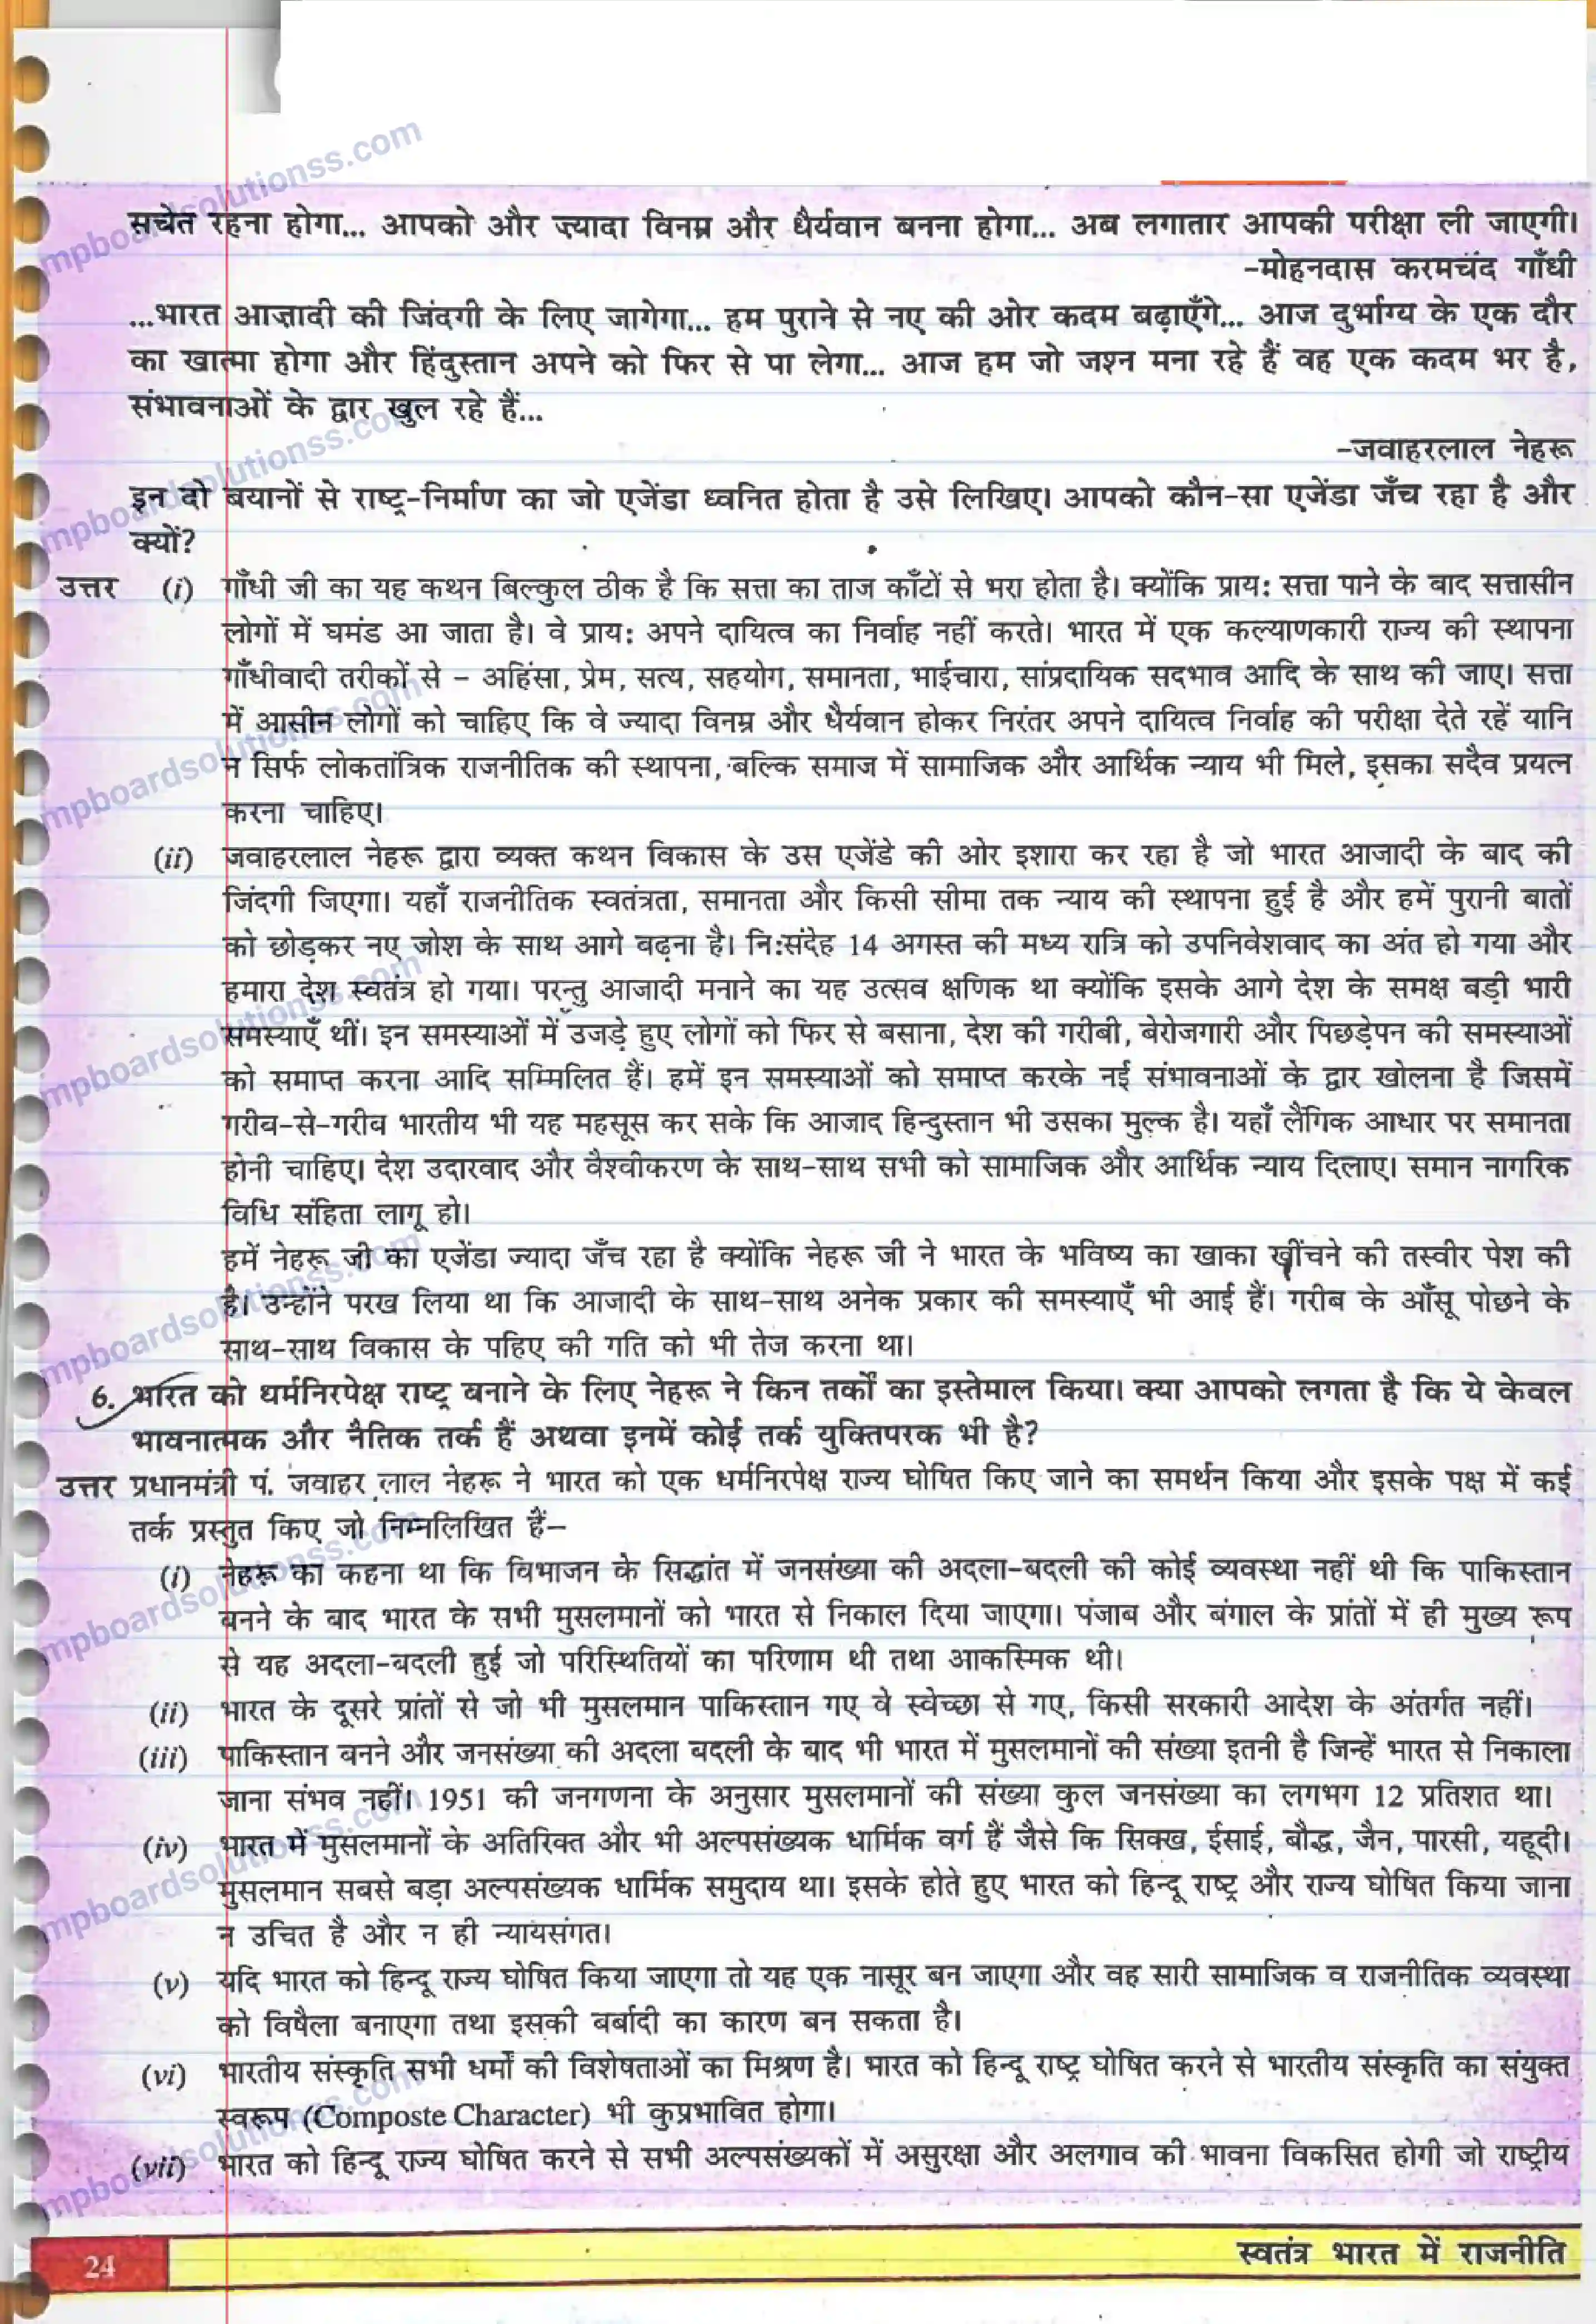 सचेत रहना होगा... आपको और ज़्यादा विनम्र और धैर्यवान बनना होगा... अब लगातार आपकी परीक्षा ली जाएगी।
-मोहनदास करमचंद गाँधी
...भारत आज़ादी की जिंदगी के लिए जागेगा... हम पुराने से नए की ओर कदम बढ़ाएँगे... आज दुर्भाग्य के एक दौर
का खात्मा होगा और हिंदुस्तान अपने को फिर से पा लेगा... आज हम जो जश्न मना रहे हैं वह एक कदम भर है,
संभावनाओं के द्वार खुल रहे हैं...
-जवाहरलाल नेहरू
इन दो बयानों से राष्ट्र-निर्माण का जो एजेंडा ध्वनित होता है उसे लिखिए। आपको कौन-सा एजेंडा जँच रहा है और
क्यों?
उत्तर (i) गाँधी जी का यह कथन बिल्कुल ठीक है कि सत्ता का ताज काँटों से भरा होता है। क्योंकि प्राय: सत्ता पाने के बाद सत्तासीन
लोगों में घमंड आ जाता है। वे प्राय: अपने दायित्व का निर्वाह नहीं करते। भारत में एक कल्याणकारी राज्य की स्थापना
गाँधीवादी तरीकों से – अहिंसा, प्रेम, सत्य, सहयोग, समानता, भाईचारा, सांप्रदायिक सदभाव आदि के साथ की जाए। सत्ता
में आसीन लोगों को चाहिए कि वे ज्यादा विनम्र और धैर्यवान होकर निरंतर अपने दायित्व निर्वाह की परीक्षा देते रहें यानि
न सिर्फ लोकतांत्रिक राजनीतिक की स्थापना, बल्कि समाज में सामाजिक और आर्थिक न्याय भी मिले, इसका सदैव प्रयत्न
करना चाहिए।
(ii) जवाहरलाल नेहरू द्वारा व्यक्त कथन विकास के उस एजेंडे की ओर इशारा कर रहा है जो भारत आजादी के बाद की
जिंदगी जिएगा। यहाँ राजनीतिक स्वतंत्रता, समानता और किसी सीमा तक न्याय की स्थापना हुई है और हमें पुरानी बातों
को छोड़कर नए जोश के साथ आगे बढ़ना है। नि:संदेह 14 अगस्त की मध्य रात्रि को उपनिवेशवाद का अंत हो गया और
हमारा देश स्वतंत्र हो गया। परन्तु आजादी मनाने का यह उत्सव क्षणिक था क्योंकि इसके आगे देश के समक्ष बड़ी भारी
समस्याएँ थीं। इन समस्याओं में उजड़े हुए लोगों को फिर से बसाना, देश की गरीबी, बेरोजगारी और पिछड़ेपन की समस्याओं
को समाप्त करना आदि सम्मिलित हैं। हमें इन समस्याओं को समाप्त करके नई संभावनाओं के द्वार खोलना है जिसमें
गरीब-से-गरीब भारतीय भी यह महसूस कर सके कि आजाद हिन्दुस्तान भी उसका मुल्क है। यहाँ लैंगिक आधार पर समानता
होनी चाहिए। देश उदारवाद और वैश्वीकरण के साथ-साथ सभी को सामाजिक और आर्थिक न्याय दिलाए। समान नागरिक
विधि संहिता लागू हो।
हमें नेहरू जी का एजेंडा ज्यादा जँच रहा है क्योंकि नेहरू जी ने भारत के भविष्य का खाका खींचने की तस्वीर पेश की
है। उन्होंने परख लिया था कि आजादी के साथ-साथ अनेक प्रकार की समस्याएँ भी आई हैं। गरीब के आँसू पोछने के
साथ-साथ विकास के पहिए की गति को भी तेज करना था।
6. भारत को धर्मनिरपेक्ष राष्ट्र बनाने के लिए नेहरू ने किन तर्कों का इस्तेमाल किया। क्या आपको लगता है कि ये केवल
भावनात्मक और नैतिक तर्क हैं अथवा इनमें कोई तर्क युक्तिपरक भी है?
उत्तर प्रधानमंत्री पं. जवाहर लाल नेहरू ने भारत को एक धर्मनिरपेक्ष राज्य घोषित किए जाने का समर्थन किया और इसके पक्ष में कई
तर्क प्रस्तुत किए जो निम्नलिखित हैं–
(i) नेहरू का कहना था कि विभाजन के सिद्धांत में जनसंख्या की अदला-बदली की कोई व्यवस्था नहीं थी कि पाकिस्तान
बनने के बाद भारत के सभी मुसलमानों को भारत से निकाल दिया जाएगा। पंजाब और बंगाल के प्रांतों में ही मुख्य रूप
से यह अदला-बदली हुई जो परिस्थितियों का परिणाम थी तथा आकस्मिक थी।
(ii) भारत के दूसरे प्रांतों से जो भी मुसलमान पाकिस्तान गए वे स्वेच्छा से गए, किसी सरकारी आदेश के अंतर्गत नहीं।
(iii) पाकिस्तान बनने और जनसंख्या की अदला बदली के बाद भी भारत में मुसलमानों की संख्या इतनी है जिन्हें भारत से निकाला
जाना संभव नहीं। 1951 की जनगणना के अनुसार मुसलमानों की संख्या कुल जनसंख्या का लगभग 12 प्रतिशत था।
(iv) भारत में मुसलमानों के अतिरिक्त और भी अल्पसंख्यक धार्मिक वर्ग हैं जैसे कि सिक्ख, ईसाई, बौद्ध, जैन, पारसी, यहूदी।
मुसलमान सबसे बड़ा अल्पसंख्यक धार्मिक समुदाय था। इसके होते हुए भारत को हिन्दू राष्ट्र और राज्य घोषित किया जाना
न उचित है और न ही न्यायसंगत।
(v) यदि भारत को हिन्दू राज्य घोषित किया जाएगा तो यह एक नासूर बन जाएगा और वह सारी सामाजिक व राजनीतिक व्यवस्था
को विषैला बनाएगा तथा इसकी बर्बादी का कारण बन सकता है।
(vi) भारतीय संस्कृति सभी धर्मों की विशेषताओं का मिश्रण है। भारत को हिन्दू राष्ट्र घोषित करने से भारतीय संस्कृति का संयुक्त
स्वरूप (Composte Character) भी कुप्रभावित होगा।
(vii) भारत को हिन्दू राज्य घोषित करने से सभी अल्पसंख्यकों में असुरक्षा और अलगाव की भावना विकसित होगी जो राष्ट्रीय
24 स्वतंत्र भारत में राजनीति
mpboardsolutionss.com
mpboardsolutionss.com
mpboardsolutionss.com
mpboardsolutionss.com
mpboardsolutionss.com
mpboardsolutionss.com
mpboardsolutionss.com
mpboardsolutionss.com